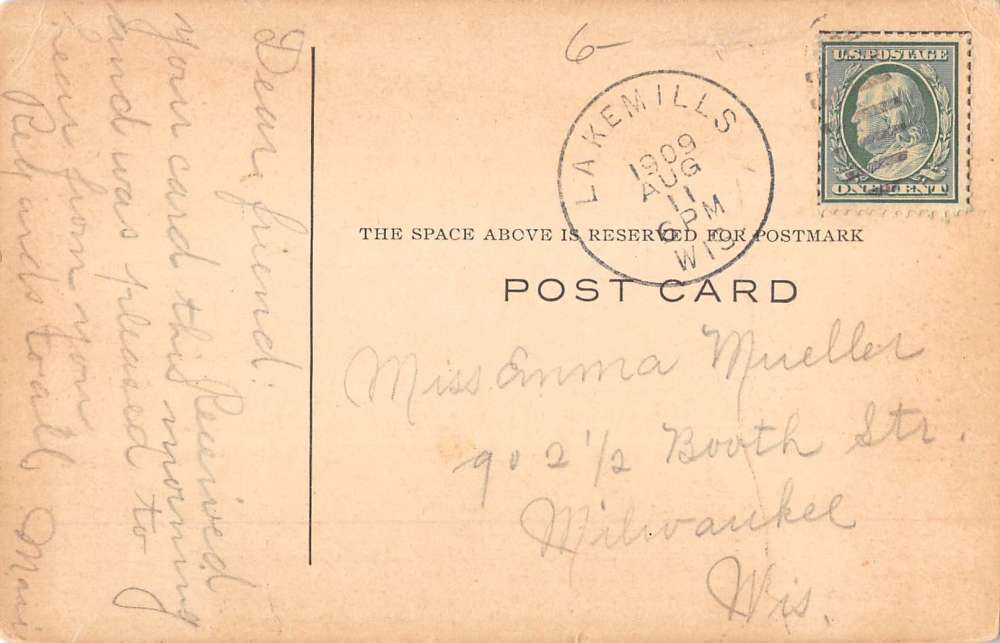 Dear friend: Received
your card this morning
and was pleased to
hear from you
to all.
6-
U.S. POSTAGE
ONE CENT
LAKE MILLS
1909
AUG
11
6 PM
WIS
THE SPACE ABOVE IS RESERVED FOR POSTMARK
POST CARD
Miss Emma Mueller
902 1/2 Booth Str.
Milwaukee
Wis.